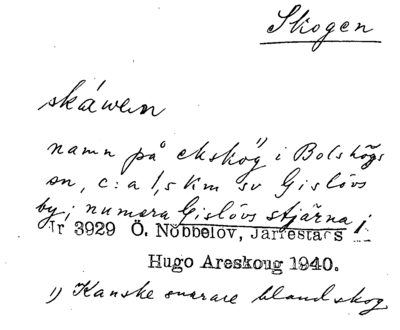 Skogen
skáwen
namn på ekskog i Bolshögs
sn, c:a 1,5 km sv Gislövs
by; numera Gislövs stjärna 1
Nr 3929 Ö. Nöbbelöv, Järrestads
Hugo Areskoug 1940.
1) Kanske snarare blandskog